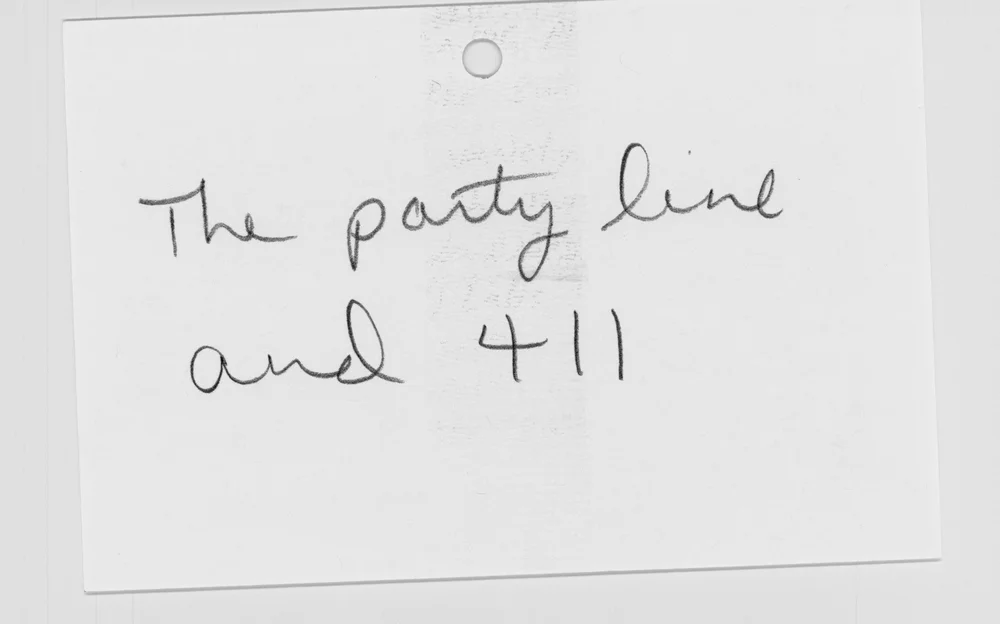 The party line
and 411